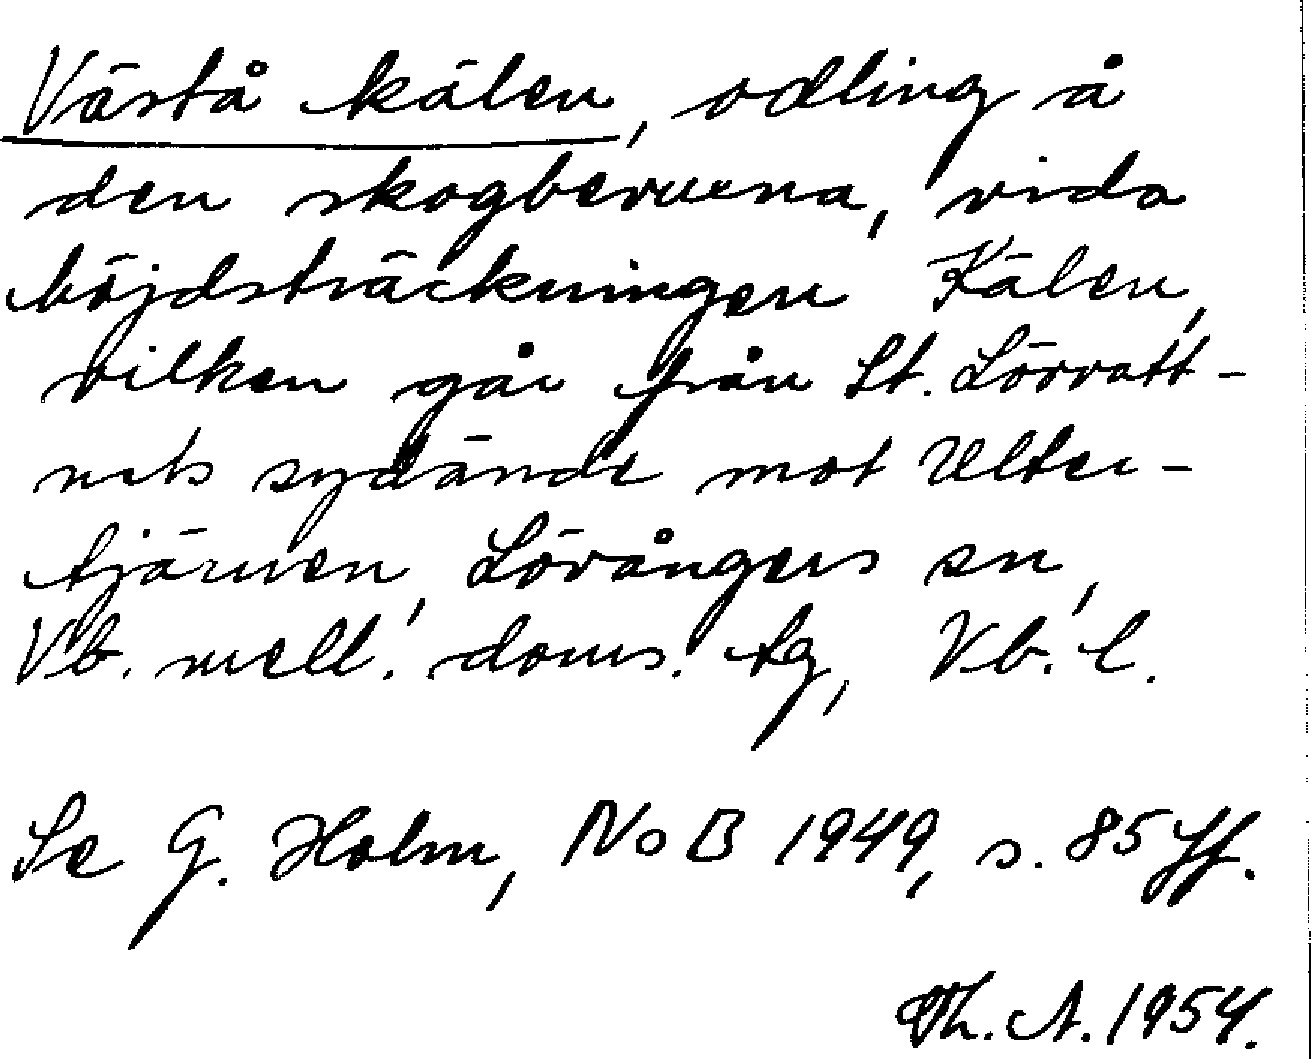 Västå kälen, odling å
den skogbevuxna, vida
höjdsträckningen Kälen,
vilken går från St. Lövvatt-
nets sydände mot Ulter-
tjärnen, Lövångers sn,
Vb. mell. doms. tg, Vb. l.
Se G. Holm, NoB 1949, s. 85 ff.
Th. A. 1954.